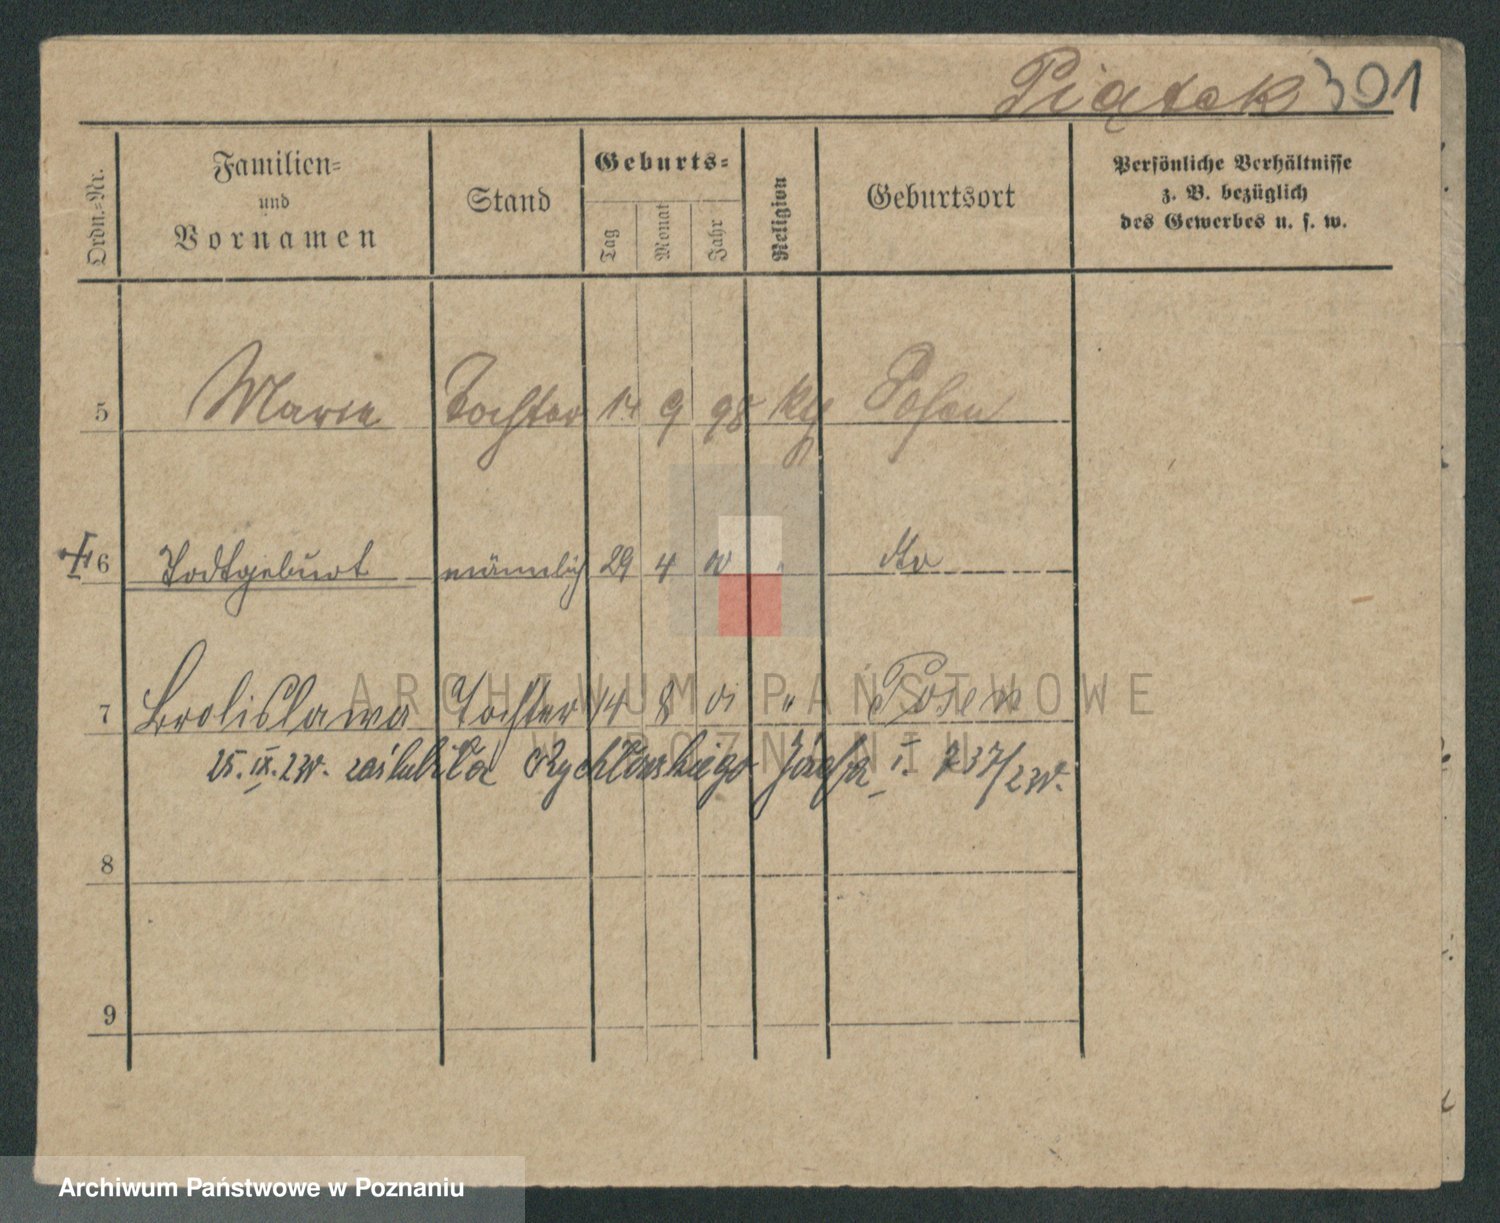 Piątek 301
Ordn.-Nr. Familien- und Vornamen Stand Geburts- Tag Monat Jahr Religion Geburtsort Persönliche Verhältnisse z. B. bezüglich des Gewerbes u. s. w.
5 Marie Tochter 14 9 98 kth Posen
6 Todtgeburt männlich 29 4 dto
7 Brolislawa Tochter 14 8 01 " Posen
25. IX. 23r. zaślubiła Rychlowskiego Józefa I. 737/23r.
8
9
ARCHIWUM PAŃSTWOWE
W POZNANIU
Archiwum Państwowe w Poznaniu